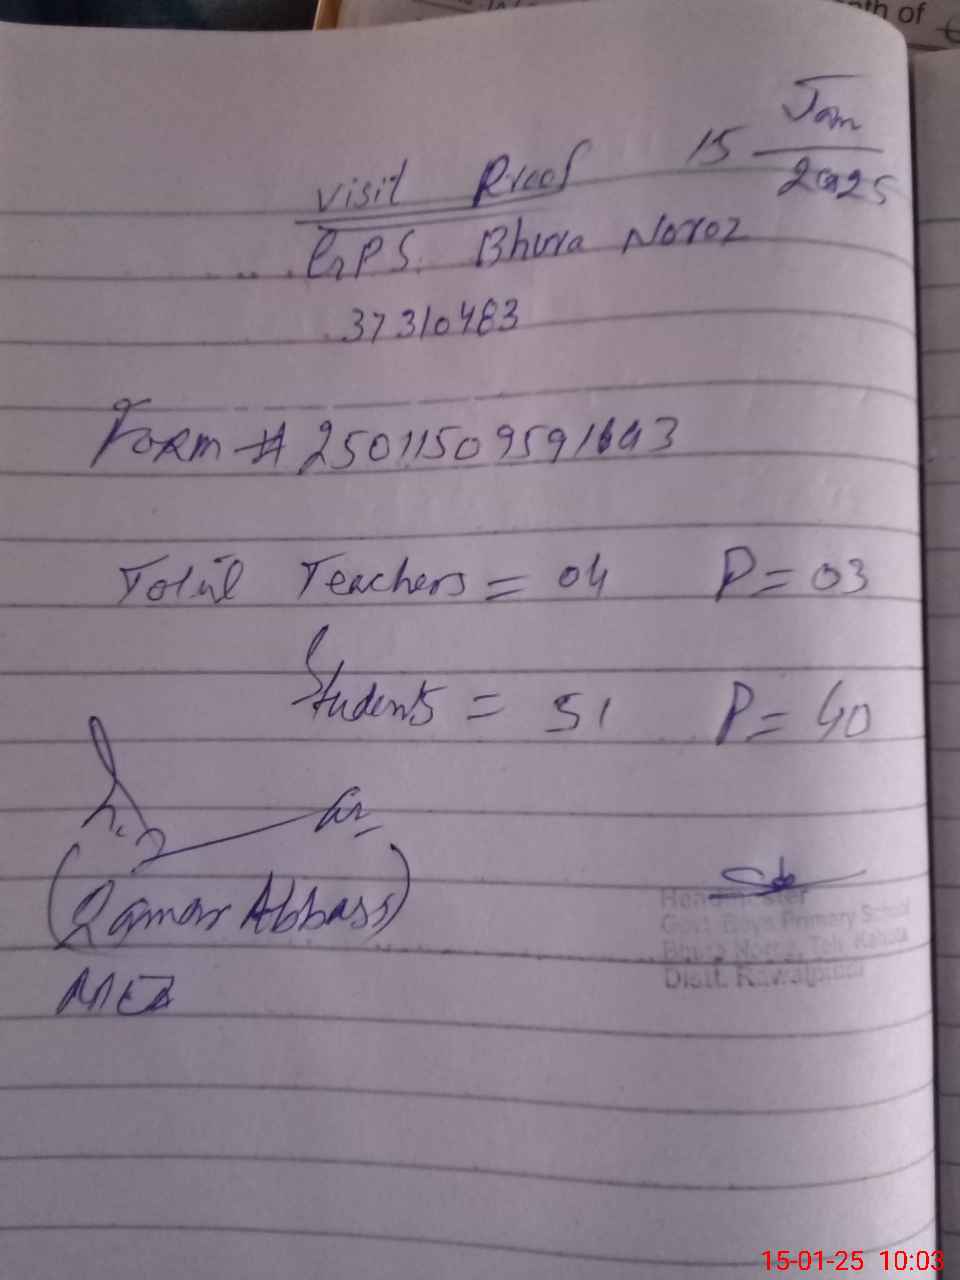 nth of
15 Jan
2025
Visit Proof
GPS. Bhura Noroz
37310483
Form # 25011509591643
Total Teachers = 04 P = 03
Students = 51 P = 40
(Qamar Abbass)
MEA
Headmaster
Govt. Boys Primary School
Bhura Noroz, Teh. Kahuta
Distt. Rawalpindi
15-01-25 10:03